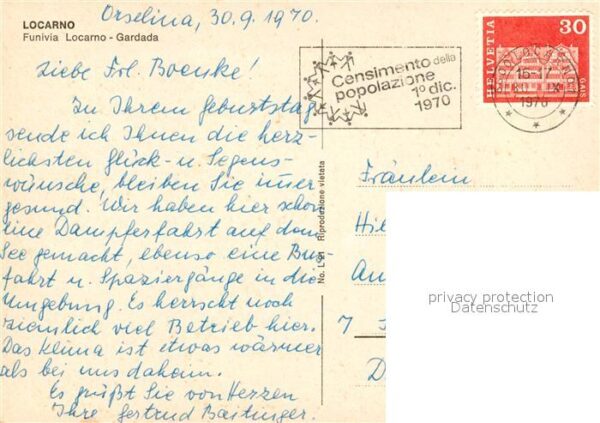 Orselina, 30.9.1970.
LOCARNO
Funivia Locarno - Cardada
Liebe Frl. Boenke!
Zu Ihrem Geburtstag
sende ich Ihnen die herz-
lichsten Glück- u. Segens-
wünsche, bleiben Sie immer
gesund. Wir haben hier schon
eine Dampferfahrt auf dem
See gemacht, ebenso eine Bus-
fahrt u. Spaziergänge in die
Umgebung. Es herrscht noch
ziemlich viel Betrieb hier.
Das Klima ist etwas wärmer
als bei uns daheim.
Es grüßt Sie von Herzen
Ihre Gertrud Baitinger.
No. L 91 Riproduzione vietata
Censimento della
popolazione
1° dic.
1970
HELVETIA
30
GAIS
16-17
1970
Fräulein
Hil
An
7
D
privacy protection
Datenschutz